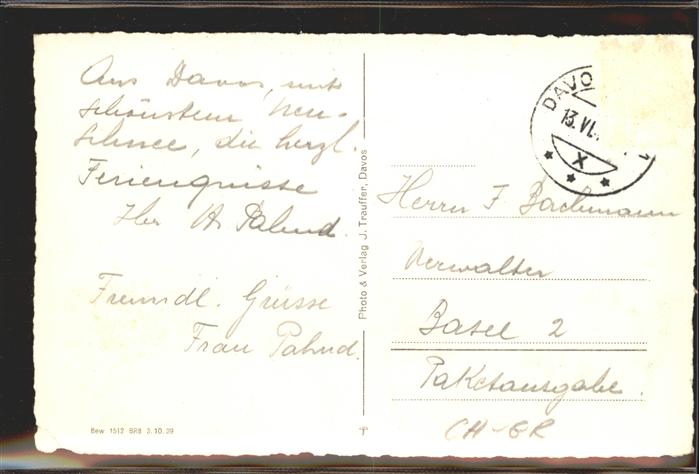 Aus Davos, mit
schönstem Neu-
schnee, die herzl.
Feriengrüsse
Ihr A Pahud.
Freundl. Grüsse
Frau Pahud.
Bew 1512 BRB 3.10.39
Photo & Verlag J. Trauffer, Davos
DAVO
13.VI.
X
Herrn F. Bachmann
Verwalter
Basel 2
Paketausgabe.
CH-GR